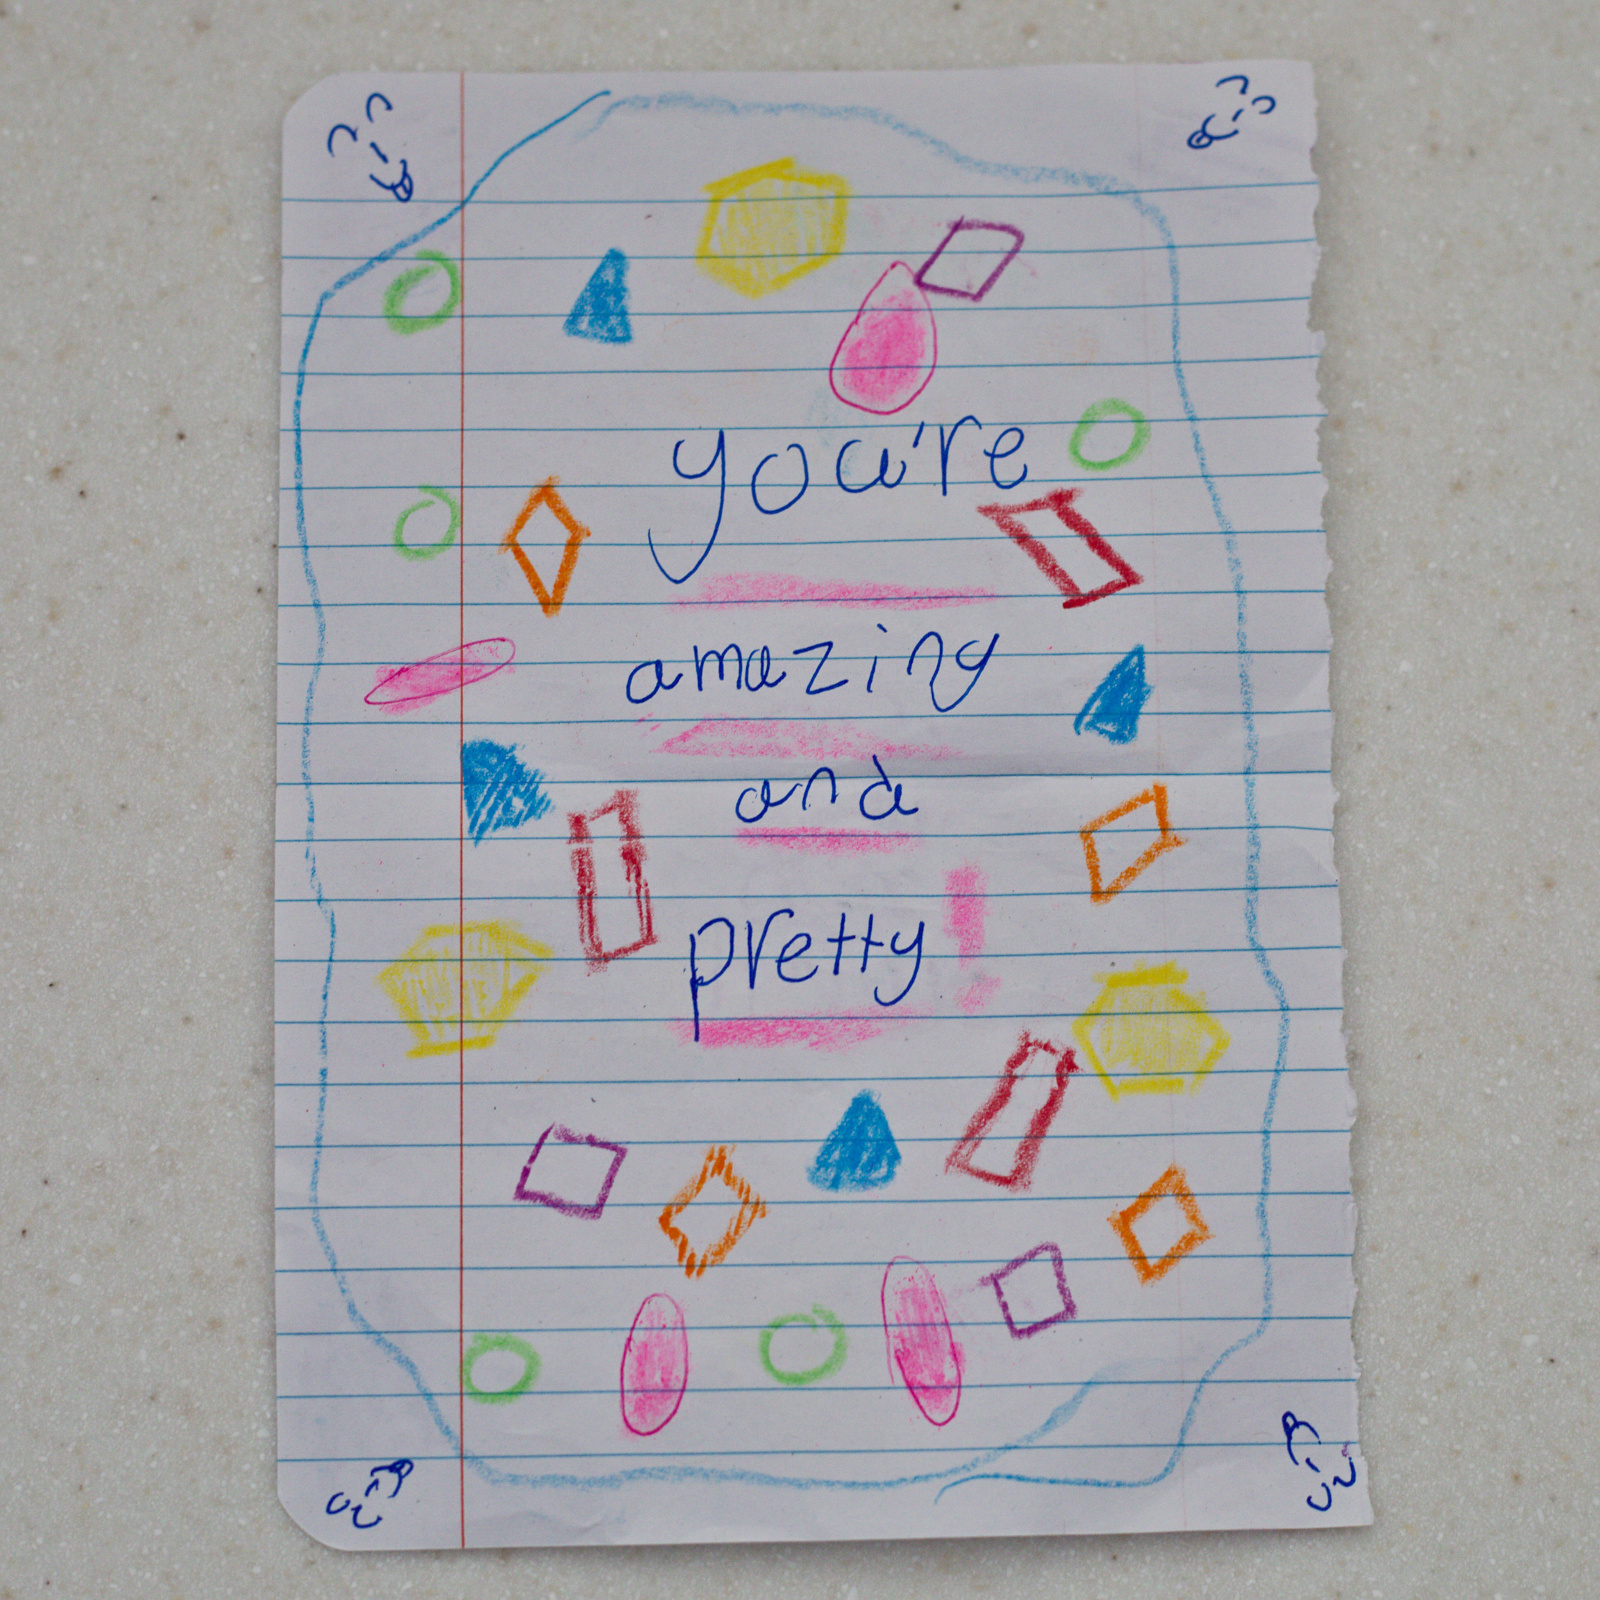 you're
amazing
and
pretty